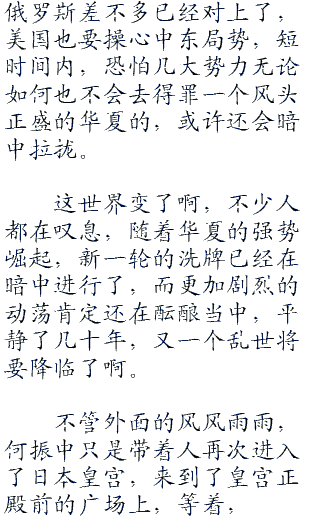 俄罗斯差不多已经对上了，
美国也要操心中东局势，短
时间内，恐怕几大势力无论
如何也不会去得罪一个风头
正盛的华夏的，或许还会暗
中拉拢。
这世界变了啊，不少人
都在叹息，随着华夏的强势
崛起，新一轮的洗牌已经在
暗中进行了，而更加剧烈的
动荡肯定还在酝酿当中，平
静了几十年，又一个乱世将
要降临了啊。
不管外面的风风雨雨，
何振中只是带着人再次进入
了日本皇宫，来到了皇宫正
殿前的广场上，等着，